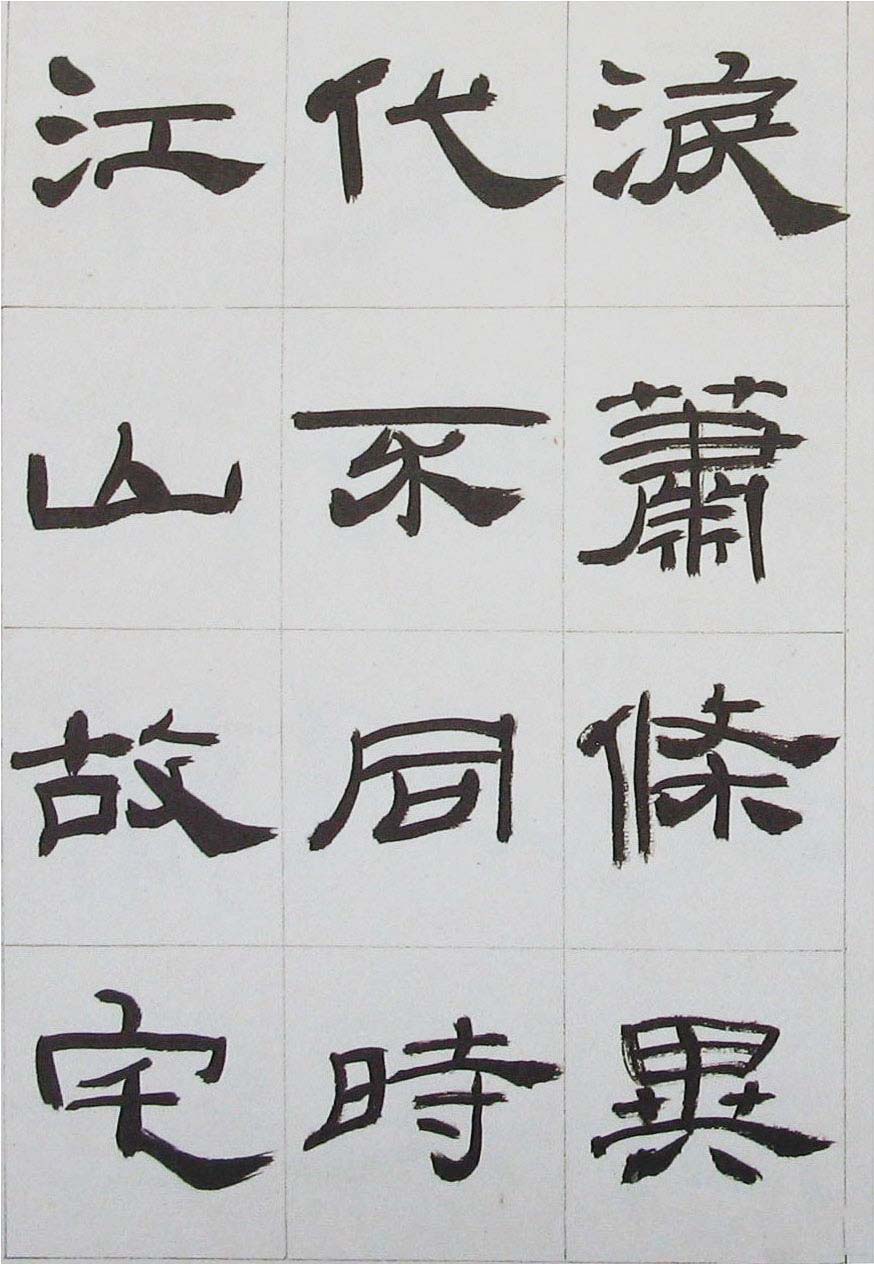 淚蕭條異
代不同時
江山故宅